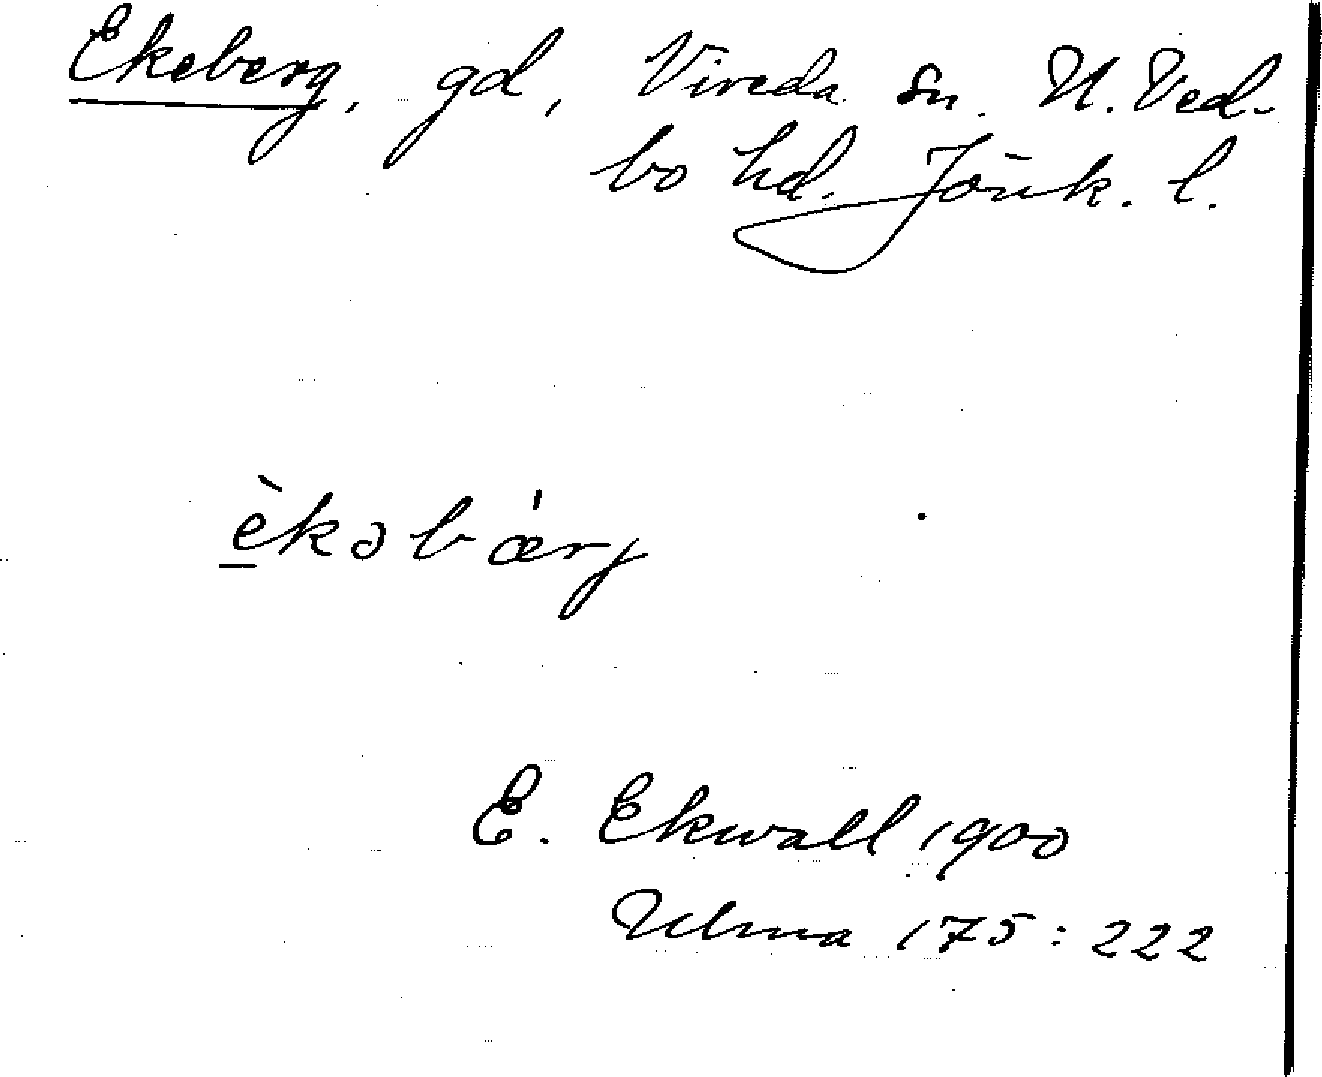 Ekeberg, gd, Vireda sn. N. Ved-
bo hd. Jönk. l.
èkəbǽrj
E. Ekwall 1900
Ulma 175:222